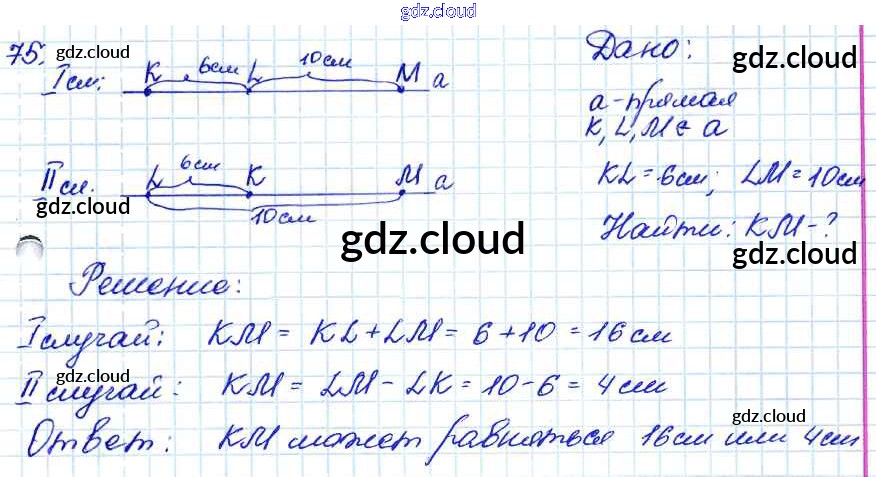 gdz.cloud
75. gdz.cloud
I сл: K 6см L 10см M a
Дано:
gdz.cloud
a - прямая
K, L, M ∈ a
gdz.cloud
II сл. L 6см K M a
10см
gdz.cloud
KL = 6см; LM = 10см
gdz.cloud
Найти: KM - ?
gdz.cloud
gdz.cloud
Решение:
I случай: KM = KL + LM = 6 + 10 = 16 см
gdz.cloud
II случай: KM = LM - LK = 10 - 6 = 4 см
gdz.cloud
Ответ: KM может равняться 16 см или 4 см